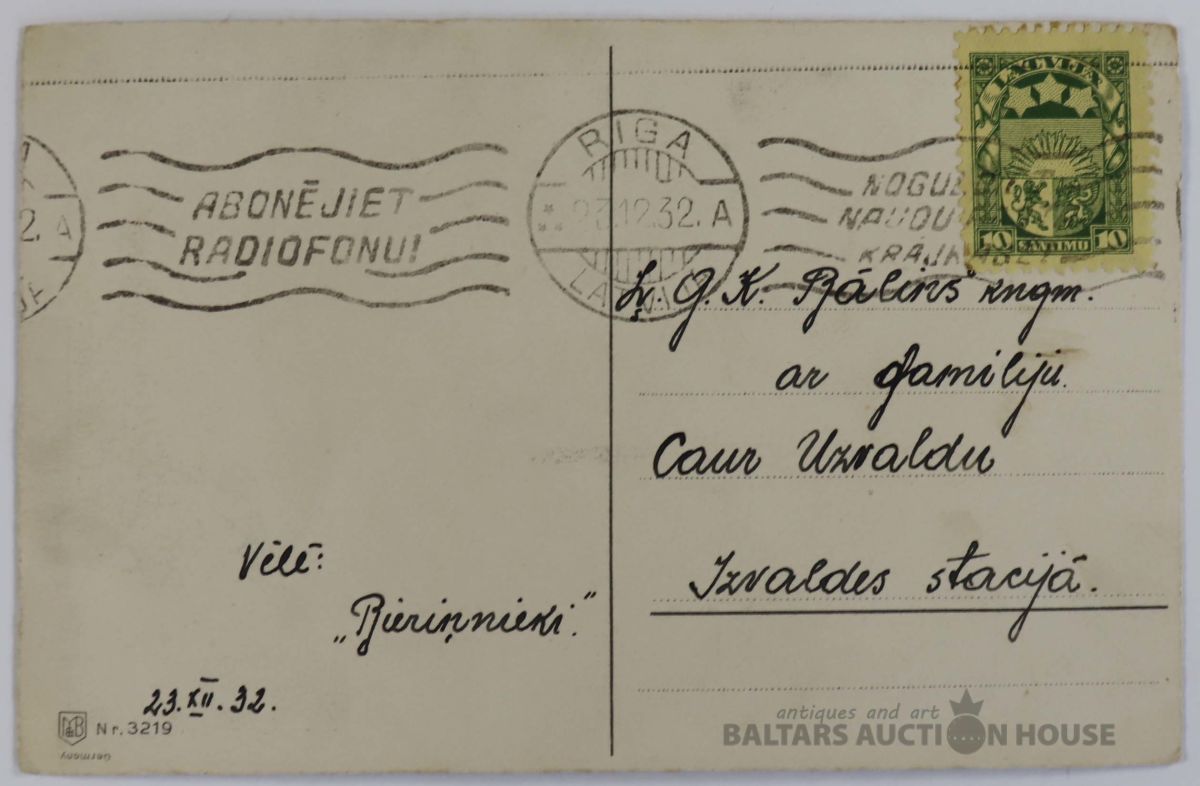 LATVIJA
10 SANTIMU 10
ABONĒJIET
RADIOFONU!
RIGA
23.12.32. A
2. A
NAUDU
Ļ. G. K. Bāliņš kngm.
ar familiju.
Caur Uzvaldu
Izvaldes stacijā.
Vēlē:
„Bieriņnieki."
23.XII.32.
MB Nr. 3219
Germany
antiques and art
BALTARS AUCTION HOUSE